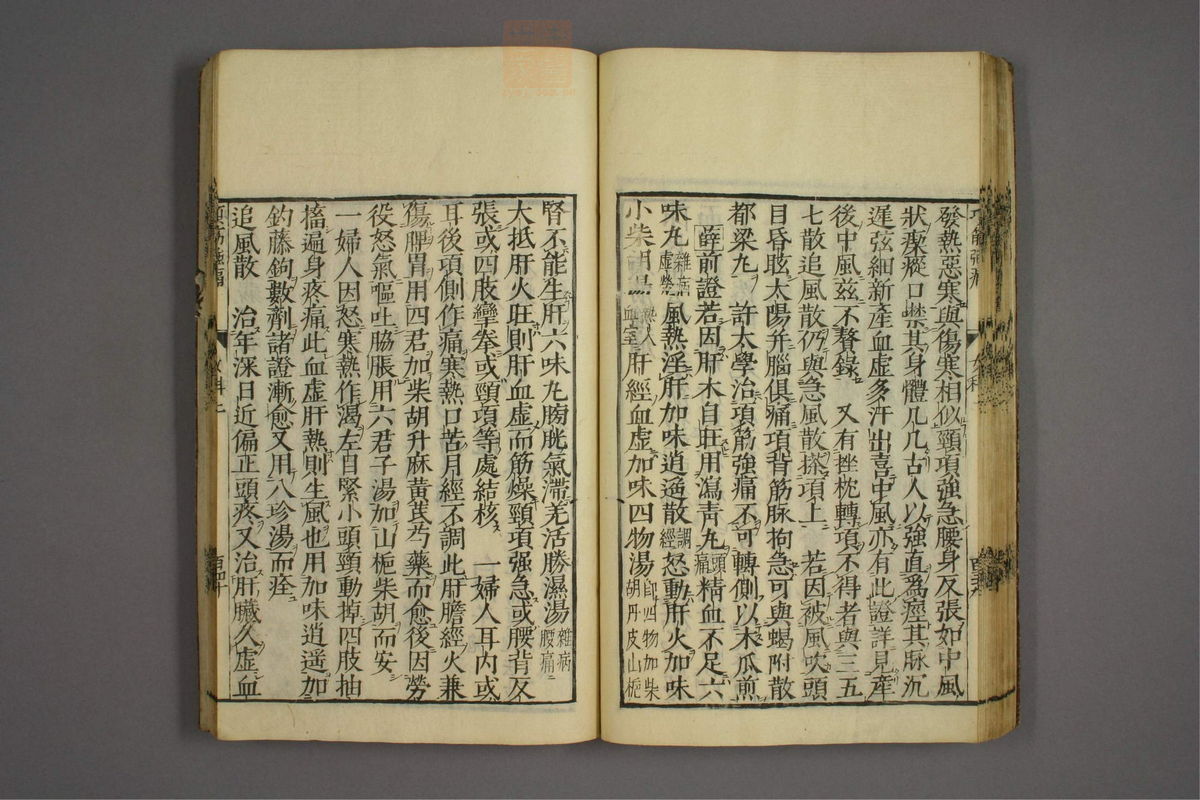 發熱惡寒與傷寒相似頸項強急腰身反張如中風
狀瘈瘲口禁其身體几几古人以強直爲痙其脉沉
遲弦細新產血虛多汗出喜中風亦有此證詳見產
後中風玆不贅錄 又有挫枕轉項不得者與三五
七散追風散仍與急風散搽項上 若因被風吹頭
目昏眩太陽并腦俱痛項背筋脉拘急可與蝎附散
都梁丸 許太學治項筋強痛不可轉側以木瓜煎
薛前證若因肝木自旺用瀉青丸頭痛精血不足六
味丸雜病虛勞風熱淫肝加味逍遥散調經怒動肝火加味
小柴胡湯熱入血室肝經血虛加味四物湯卽四物加柴胡丹皮山梔
腎不能生肝六味丸膀胱氣滯羌活勝濕湯雜病腰痛
大抵肝火旺則肝血虛而筋燥頸項强急或腰背反
張或四肢攣拳或頸項等處結核 一婦人耳内或
耳後項側作痛寒熱口苦月經不調此肝膽經火兼
傷脾胃用四君加柴胡升麻黃芪芍藥而愈後因勞
役怒氣嘔吐脇脹用六君子湯加山梔柴胡而安
一婦人因怒寒熱作渴左目緊小頭頸動掉四肢抽
搐遍身疼痛此血虛肝熱則生風也用加味逍遥加
釣藤鉤數劑諸證漸愈又用八珍湯而痊
追風散 治年深日近偏正頭疼又治肝臟久虛血